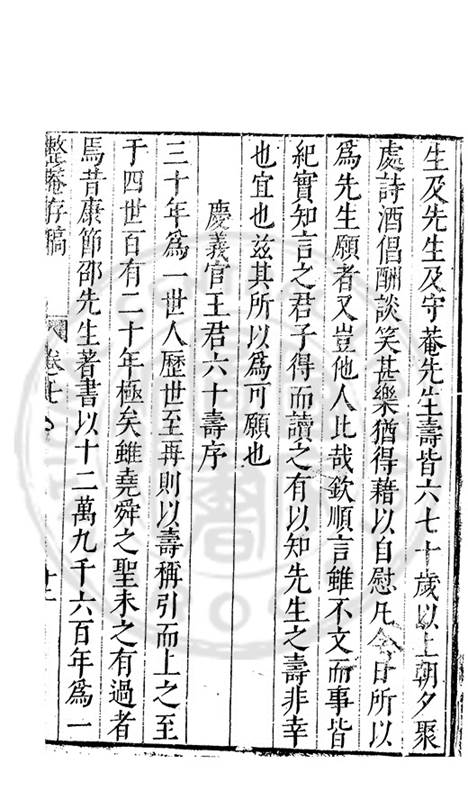 生及先生及守菴先生壽皆六七十歲以上朝夕聚
處詩酒倡酬談笑甚樂猶得藉以自慰凡今日所以
爲先生願者又豈他人比哉欽順言雖不文而事皆
紀實知言之君子得而讀之有以知先生之壽非幸
也宜也兹其所以爲可願也
慶義官王君六十壽序
三十年爲一世人歷世至再則以壽稱引而上之至
于四世百有二十年極矣雖堯舜之聖未之有過者
焉昔康節邵先生著書以十二萬九千六百年爲一
整菴存稿
卷七